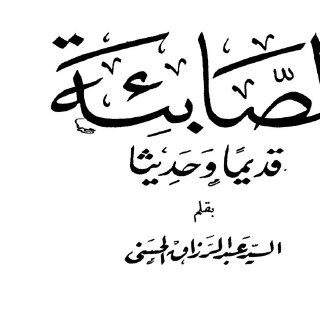 الصَّابِئَة
قديمًا وَحَدِيثًا
بقلم
السيّد عَبد الرزاق الحسَني